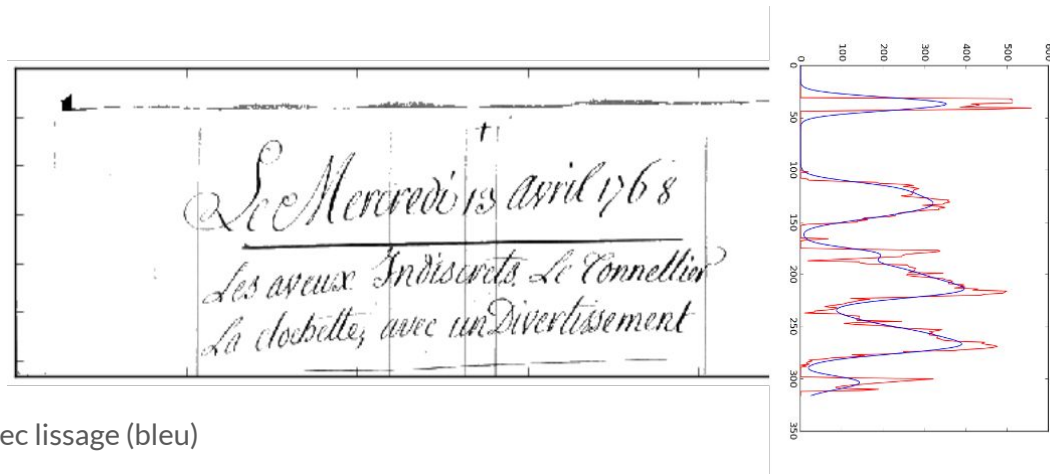 †
Le Mercredi 13 avril 1768
Les aveux Indiscrets. Le Tonnellier
La clochette, avec un Divertissement
ec lissage (bleu)
0 100 200 300 400 500
0
50
100
150
200
250
300
350